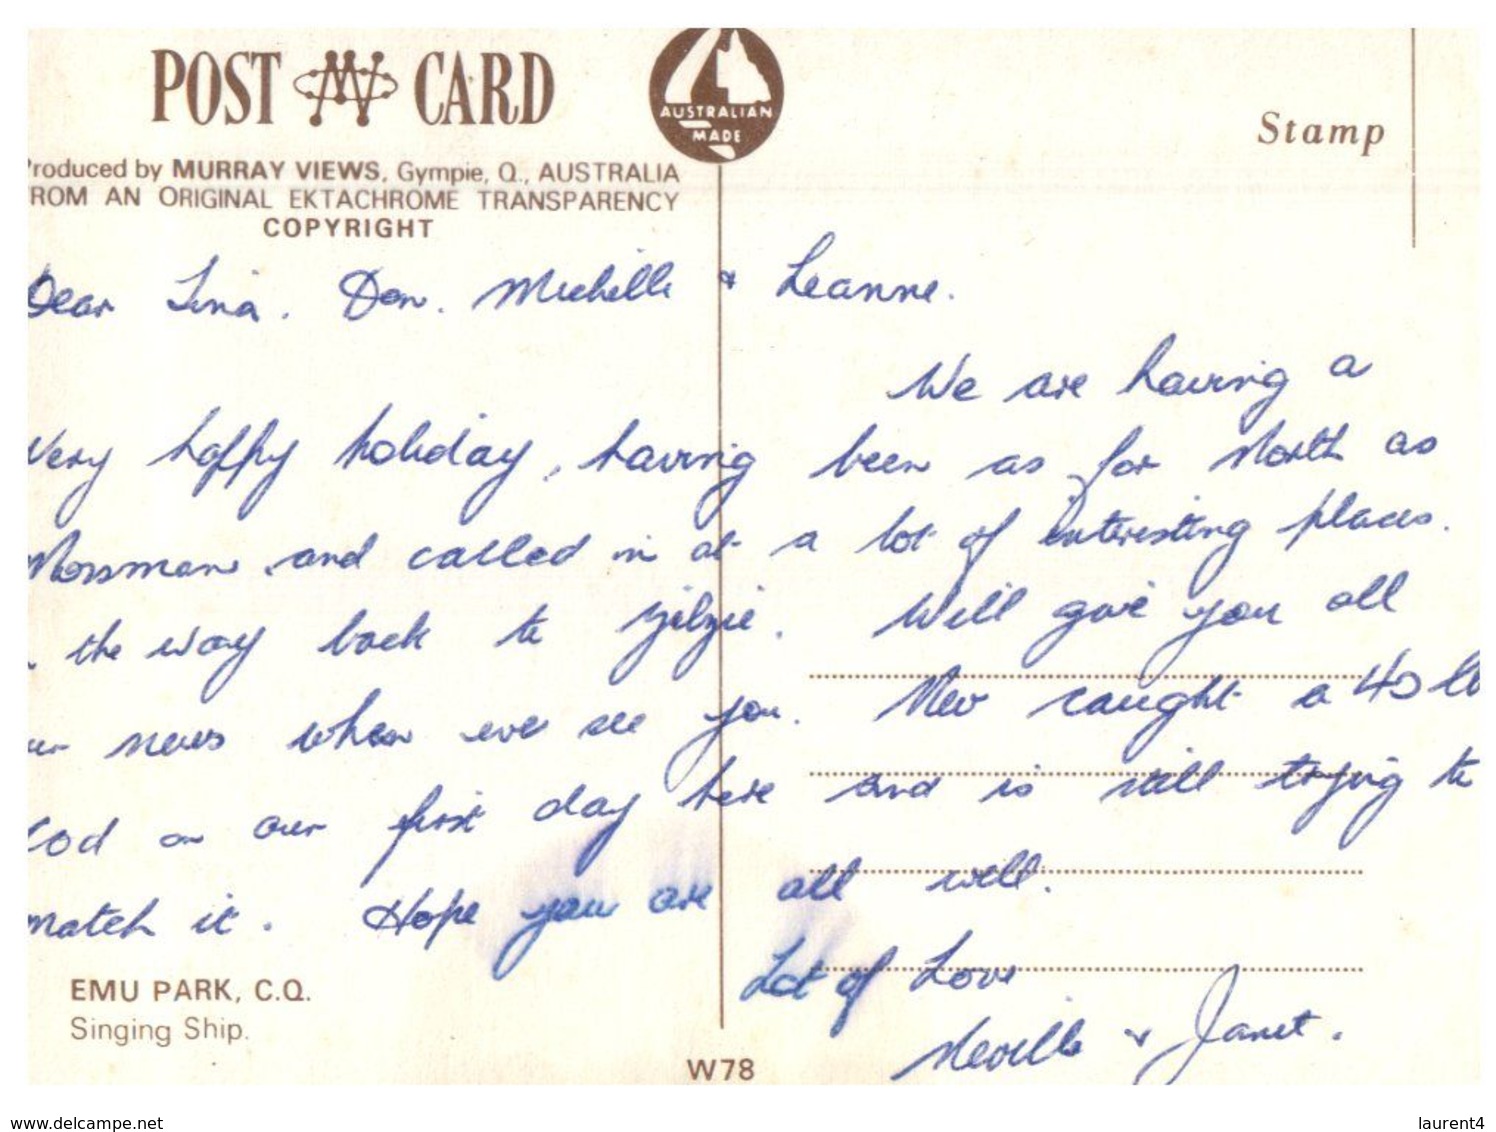 POST CARD
AUSTRALIAN
MADE
Stamp
Produced by MURRAY VIEWS, Gympie, Q., AUSTRALIA
FROM AN ORIGINAL EKTACHROME TRANSPARENCY
COPYRIGHT
Dear Tina. Don. Michelle & Leanne.
We are having a
Very happy holiday, having been as far North as
Mossman and called in at a lot of interesting places.
the way back to Zilzie. Will give you all
our news when we see you. Nev caught a 40 lb
cod on our first day here and is still trying to
match it. Hope you are all well.
Lot of Love
Neville & Janet.
EMU PARK, C.Q.
Singing Ship.
W78
www.delcampe.net
laurent4